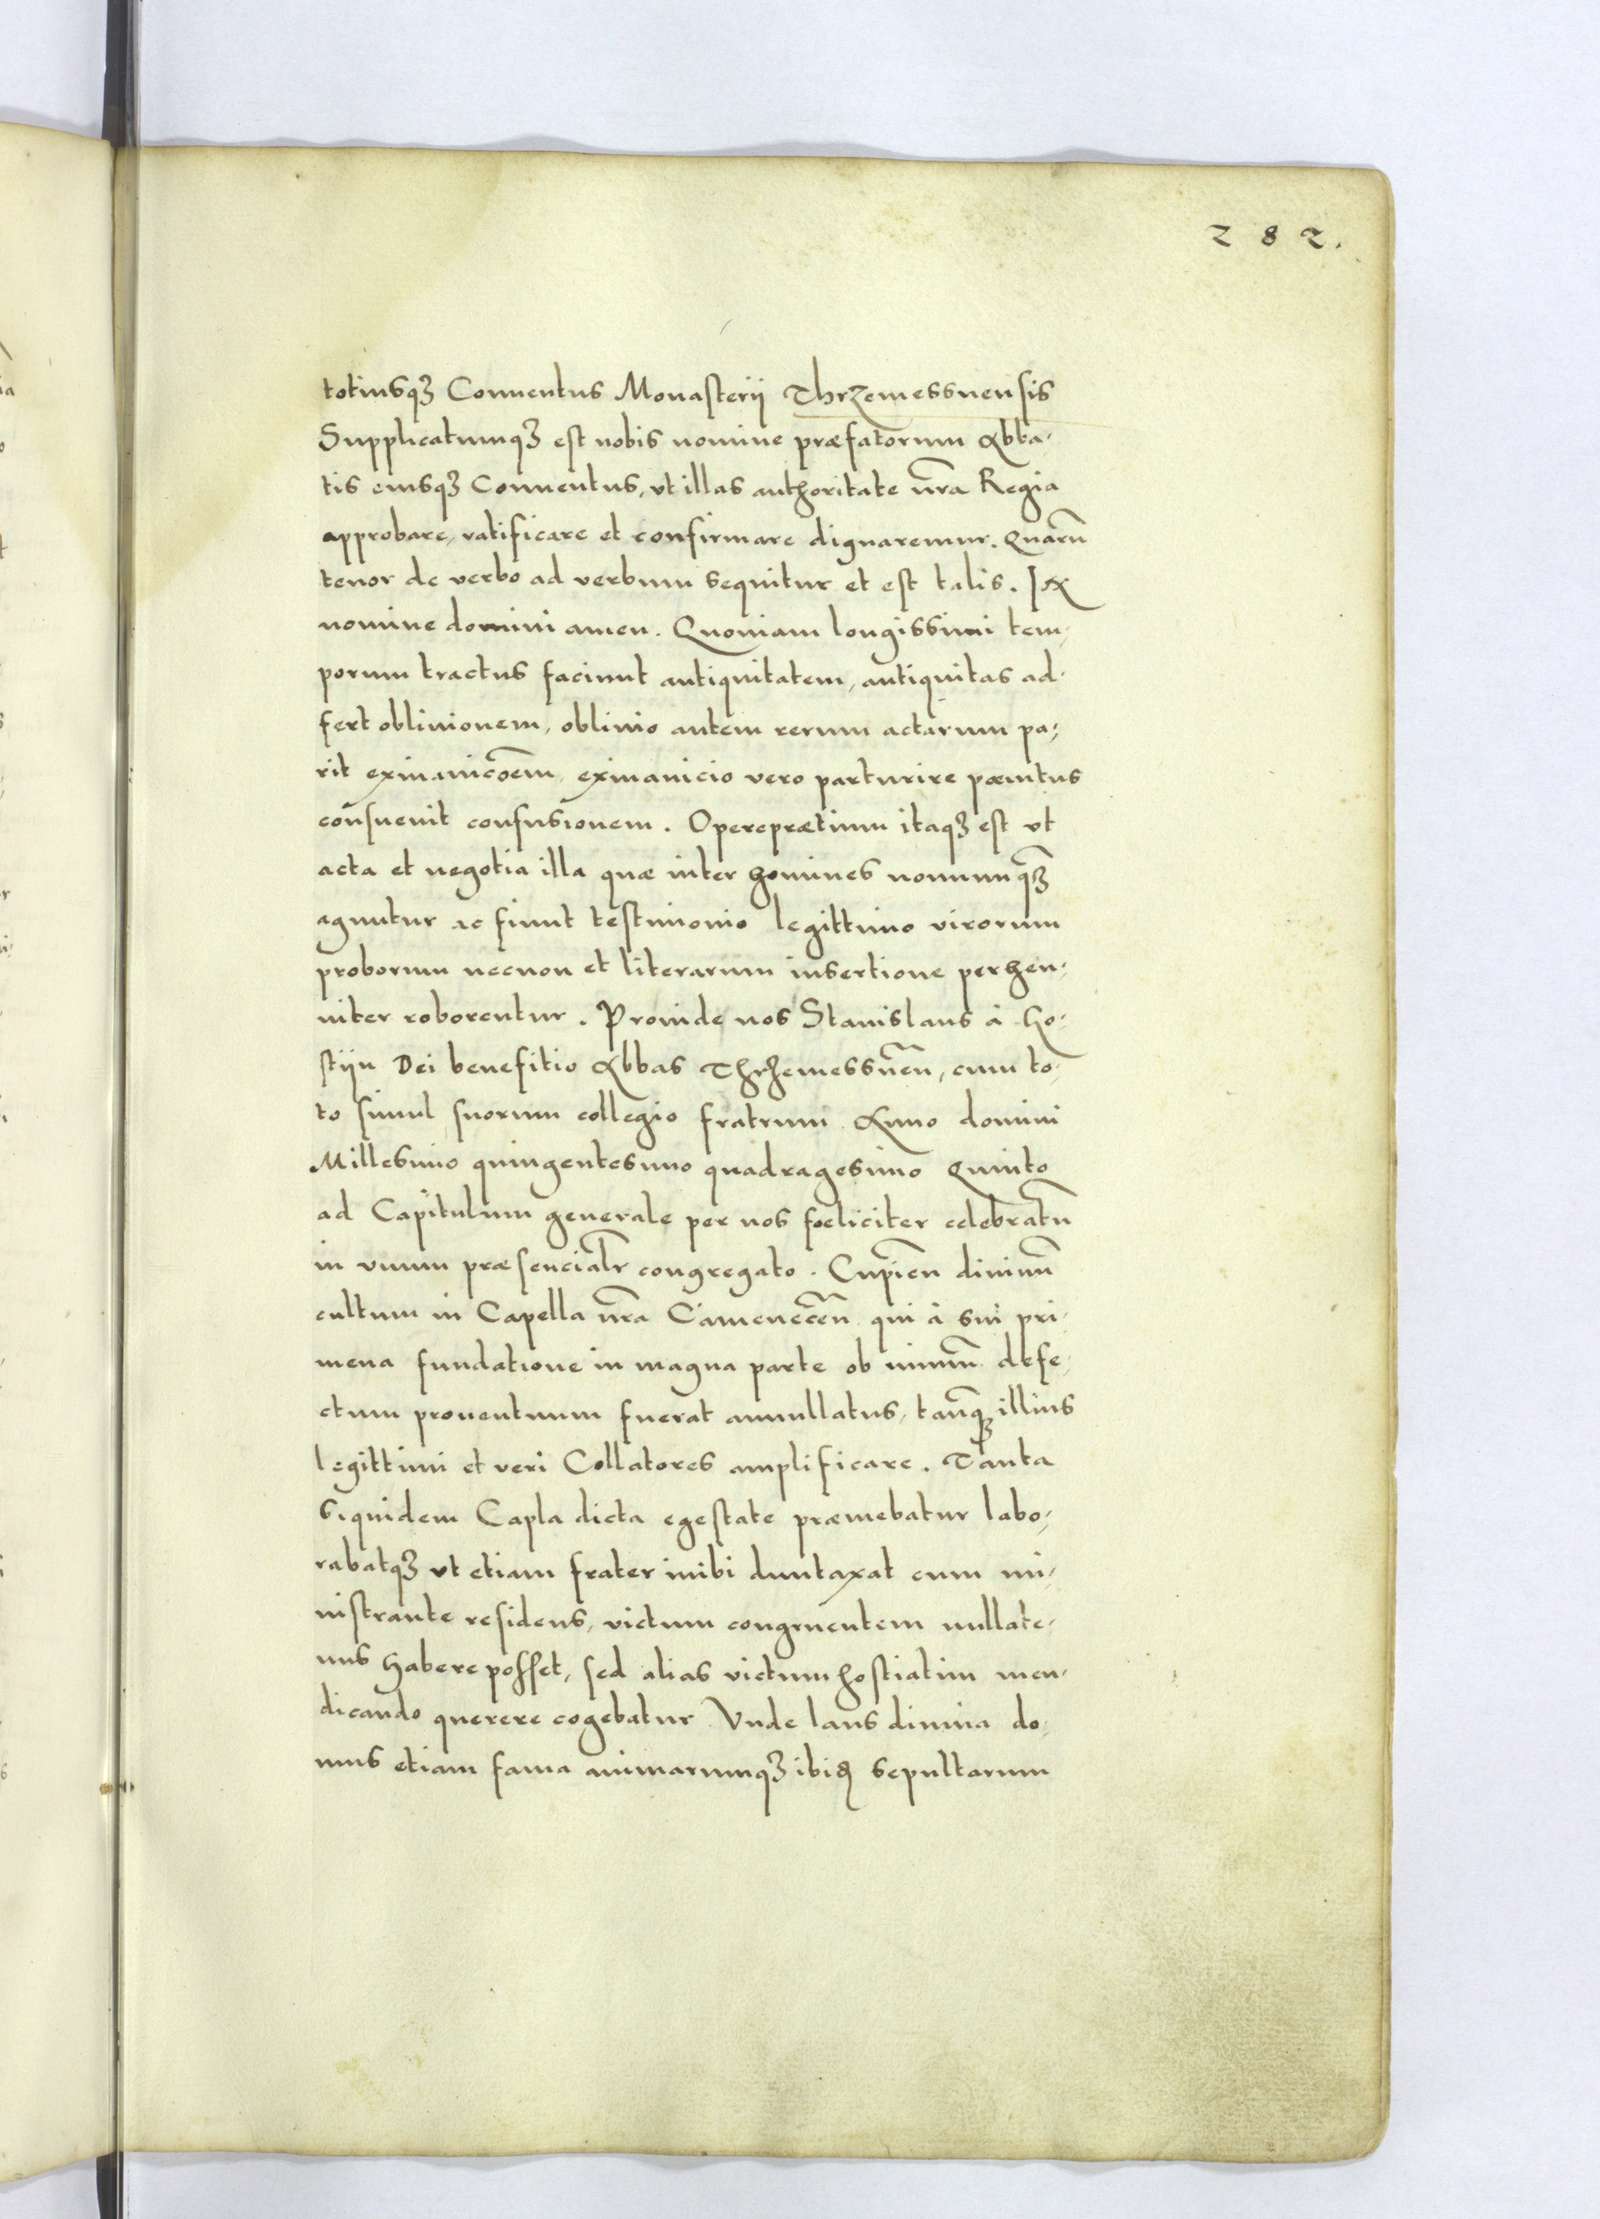 282.
totiusqꝫ Conuentus Monasterij Thrzemessnensis
Supplicatumqꝫ est nobis nomine præfatorum Abba-
tis eiusqꝫ Conuentus, vt illas authoritate nr̃a Regia
approbare, ratificare et confirmare dignaremur. Quarũ
tenor de verbo ad verbum sequitur et est talis. IN
nomine domini amen. Quoniam longissimi tem-
porum tractus faciunt antiquitatem, antiquitas ad-
fert obliuionem, obliuio autem rerum actarum pa-
rit exinanicõem, exinanicio vero parturire pænitus
consueuit confusionem. Operæprætium itaqꝫ est vt
acta et negotia illa quæ inter homines nonnunqꝫ
aguntur ac fiunt testimonio legittimo virorum
proborum necnon et literarum insertione perhen-
niter roborentur. Proinde nos Stanislaus à Ho-
stijn Dei benefitio Abbas Thrzemessneñ, cum to-
to simul suorum collegio fratrum Anno domini
Millesimo quingentesimo quadragesimo Quinto
ad Capitulum generale per nos fœliciter celebratũ
in vnum præsencialr̃ congregato. Cupieñ diuinũ
cultum in Capella nr̃a Cameneceñ qui à sui pri-
meua fundatione in magna parte ob nimiũ defe-
ctum prouentuum fuerat annullatus, tanqꝫ illius
legittimi et veri Collatores amplificare. Tanta
siquidem Capla dicta egestate præmebatur labo-
rabatqꝫ vt etiam frater inibi duntaxat cum mi-
nistrante residens, victum congruentem nullate-
nus habere posset, sed alias victum hostiatim men-
dicando querere cogebatur Vnde laus diuina do-
mus etiam fama animarumqꝫ ibiđ sepultarum